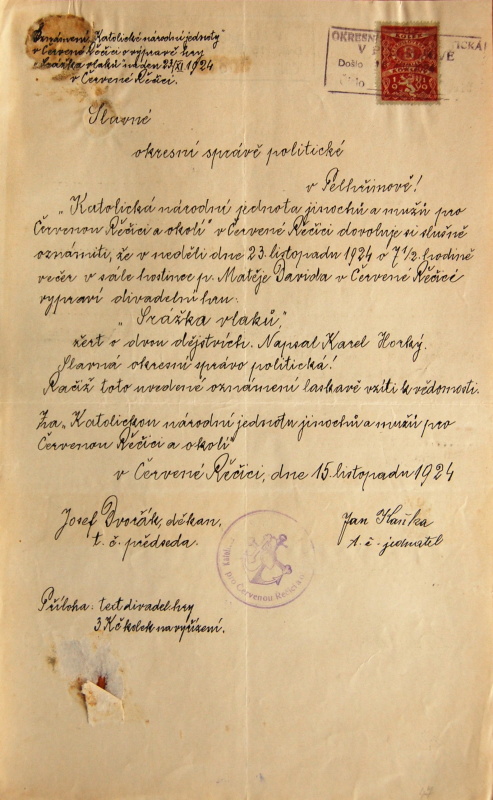 Oznámení "Katolické národní jednoty"
v Červené Řečici o výpravě hry
"Srážka vlaků" na den 23/XI 1924
v Červené Řečici.
OKRESNÍ
Došlo
KOLEK
Slavné
okresní správě politické
v Pelhřimově!
"Katolická národní jednota jinochů a mužů pro
Červenou Řečici a okolí" v Červené Řečici dovoluje si slušně
oznámiti, že v neděli dne 23. listopadu 1924 o 7 1/2 hodině
večer v sále hostince p. Matěje Davida v Červené Řečici
vypraví divadelní hru:
"Srážka vlaků,"
žert o dvou dějstvích. Napsal Karel Horký.
Slavná okresní správo politická!
Račiž toto uvedené oznámení laskavě vzíti k vědomosti.
Za "Katolickou národní jednotu jinochů a mužů pro
Červenou Řečici a okolí"
v Červené Řečici, dne 15. listopadu 1924
Josef Dvořák, děkan,
t. č. předseda.
Jan
t. č. jednatel
pro Červenou Řečici a
Příloha: text divadel. hry
3 Kč kolek na vyřízení.